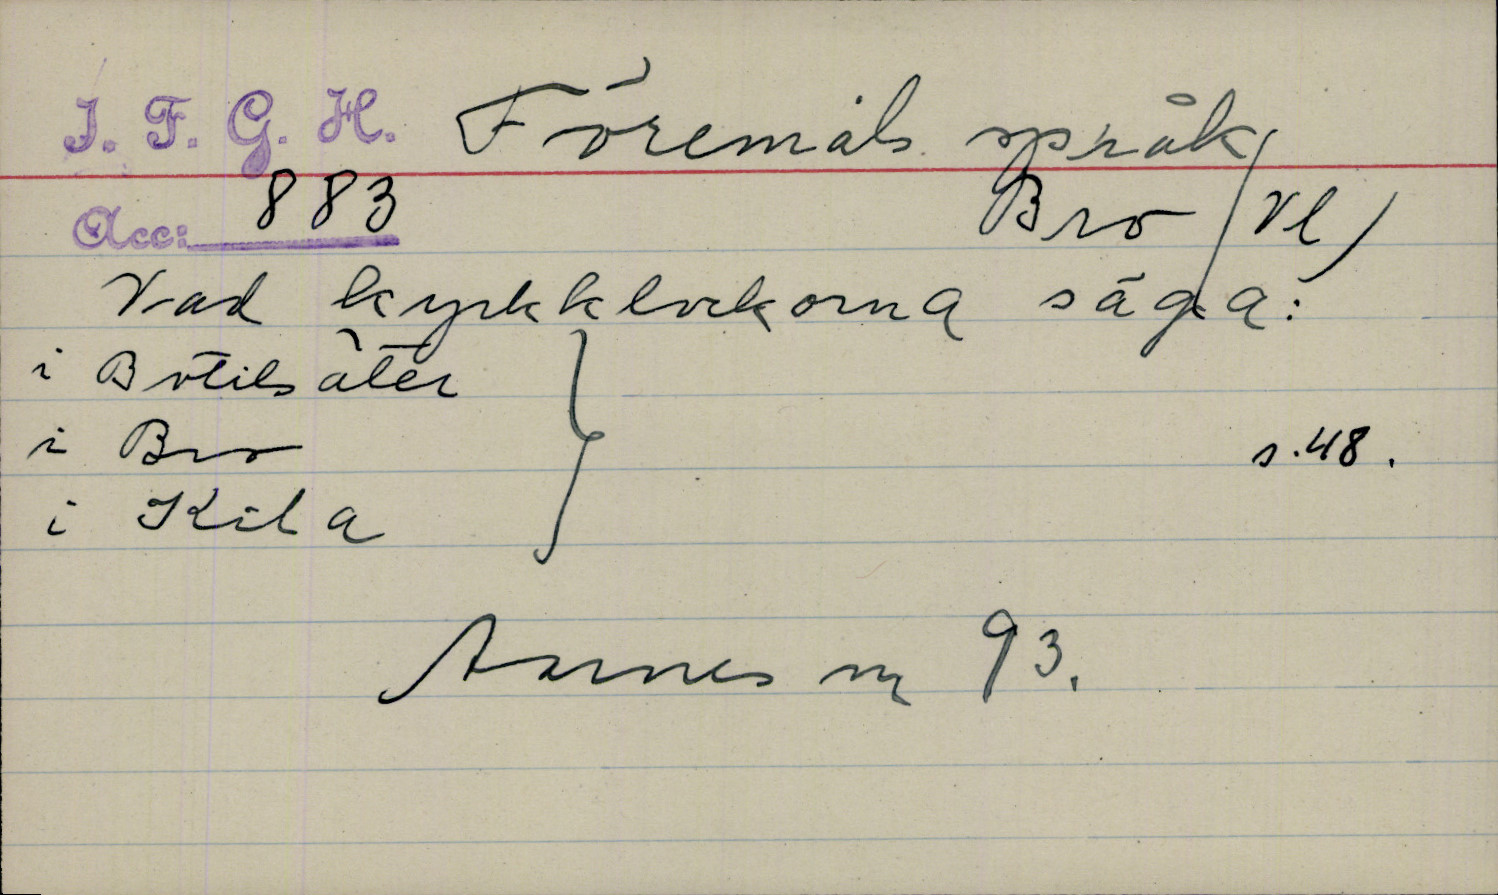 I. F. G. H. Föremåls språk
Acc: 883 Bro (Vl)
Vad kyrkklockorna säga:
i Botilsäter
i Bro s.48.
i Kila
Aarnes nr 93.